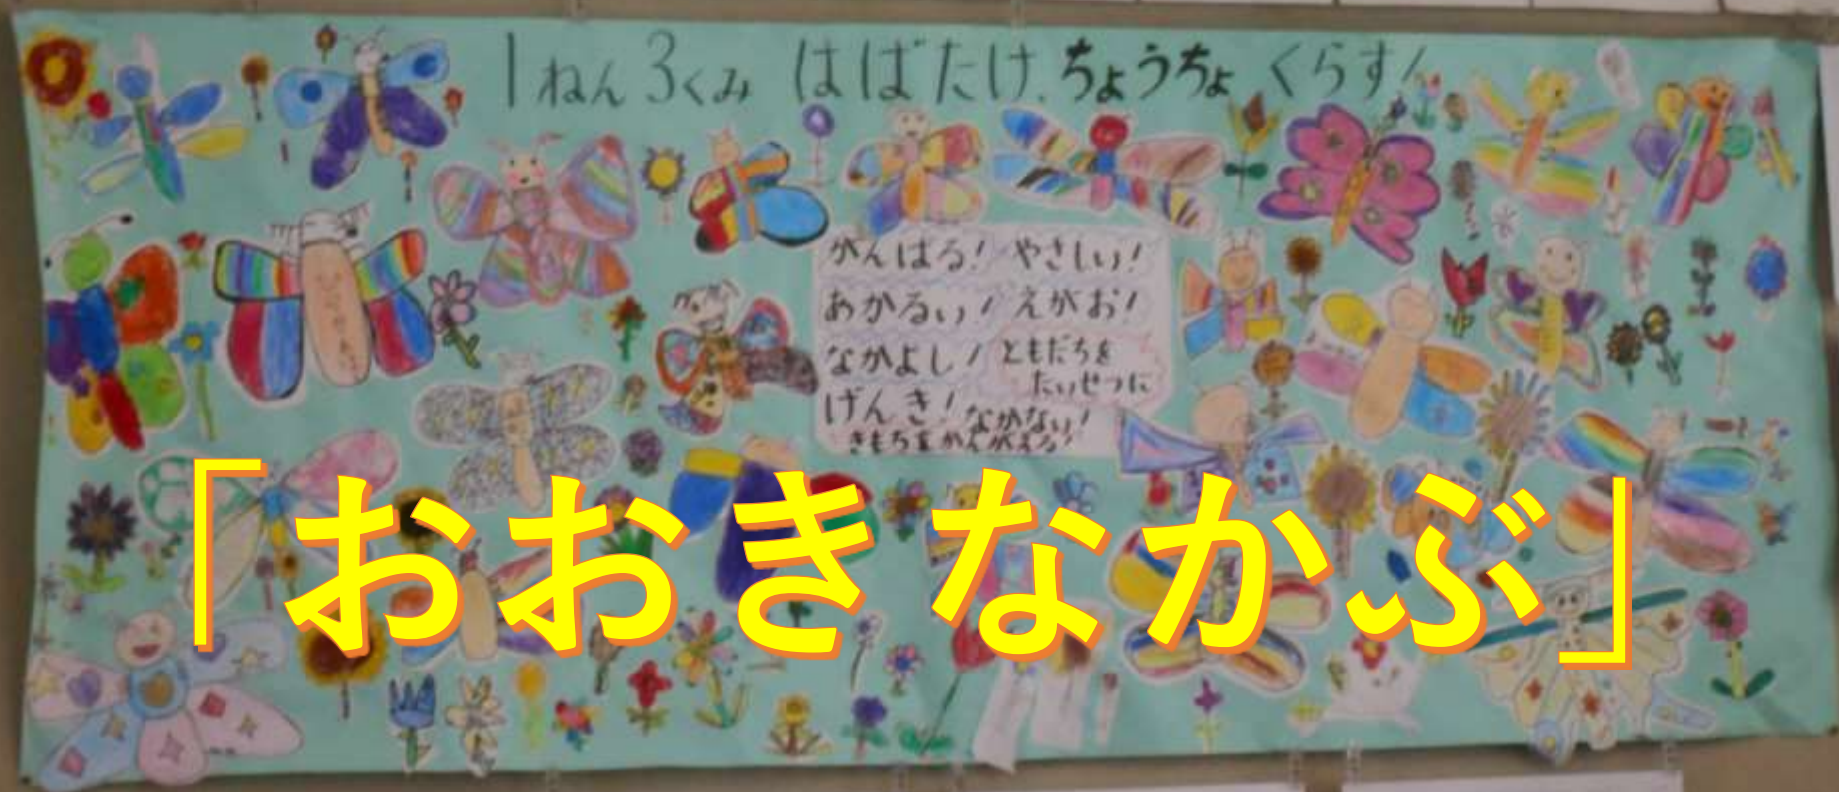 1ねん3くみ はばたけ、ちょうちょくらす!
がんばる! やさしい!
あかるい! えがお!
なかよし! ともだちを
たいせつに
げんき! なかない!
きもちをかんがえる!
「おおきなかぶ」